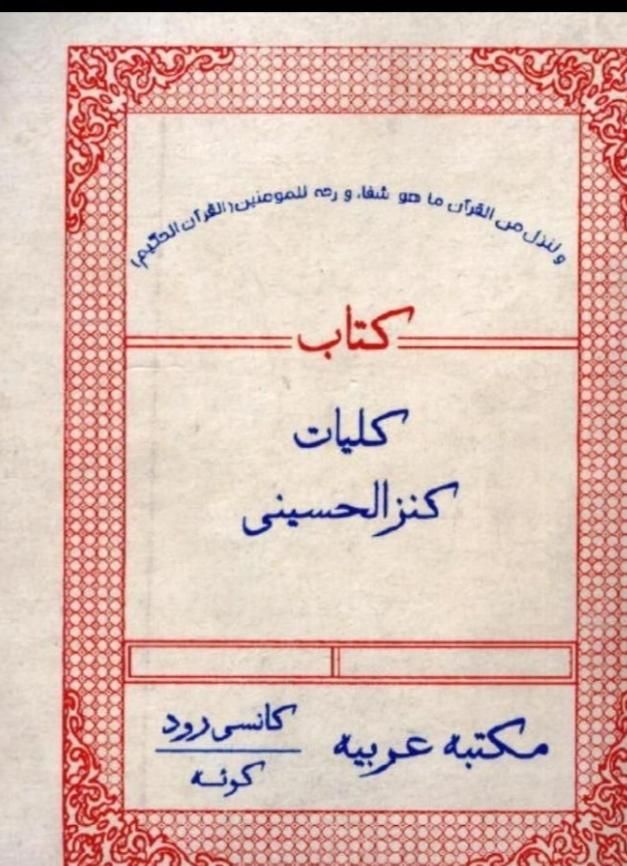 و لننزل من القرآن ما هو شفاء و رحه للمومنین (القرآن الحکیم)
کتاب
کلیات
کنزالحسینی
مکتبه عربیه
کانسی رود
کوئٹه